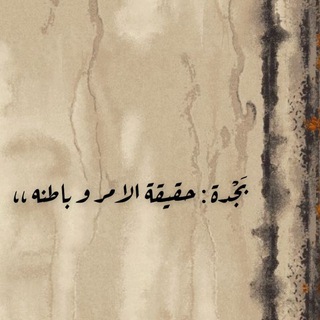 بَجْدة : حقيقة الامر و باطنه ،،